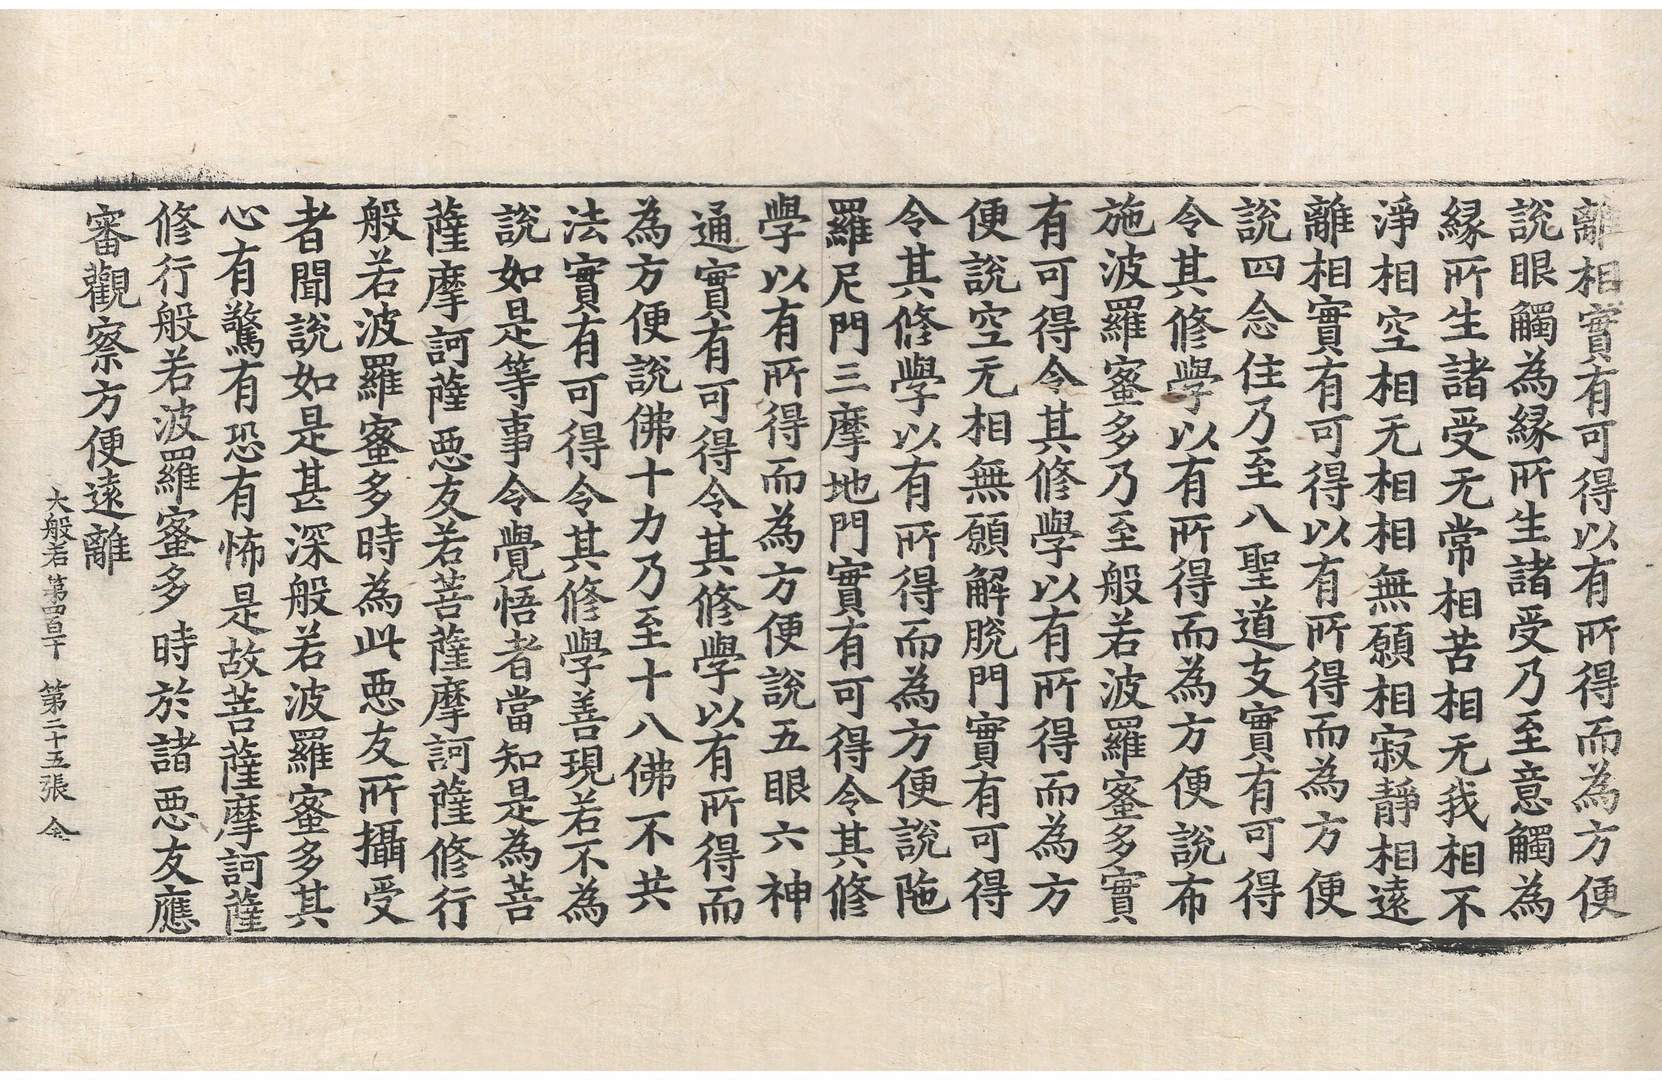 離相實有可得以有所得而為方便
說眼觸為縁所生諸受乃至意觸為
縁所生諸受无常相苦相无我相不
淨相空相无相相無願相寂靜相遠
離相實有可得以有所得而為方便
說四念住乃至八聖道支實有可得
令其修學以有所得而為方便說布
施波羅蜜多乃至般若波羅蜜多實
有可得令其修學以有所得而為方
便說空无相無願解脫門實有可得
令其修學以有所得而為方便說陁
羅尼門三摩地門實有可得令其修
學以有所得而為方便說五眼六神
通實有可得令其修學以有所得而
為方便說佛十力乃至十八佛不共
法實有可得令其修學善現若不為
說如是等事令覺悟者當知是為菩
薩摩訶薩惡友若菩薩摩訶薩修行
般若波羅蜜多時為此惡友所攝受
者聞說如是甚深般若波羅蜜多其
心有驚有恐有怖是故菩薩摩訶薩
修行般若波羅蜜多時於諸惡友應
審觀察方便遠離
大般若第四百八 第二十五張